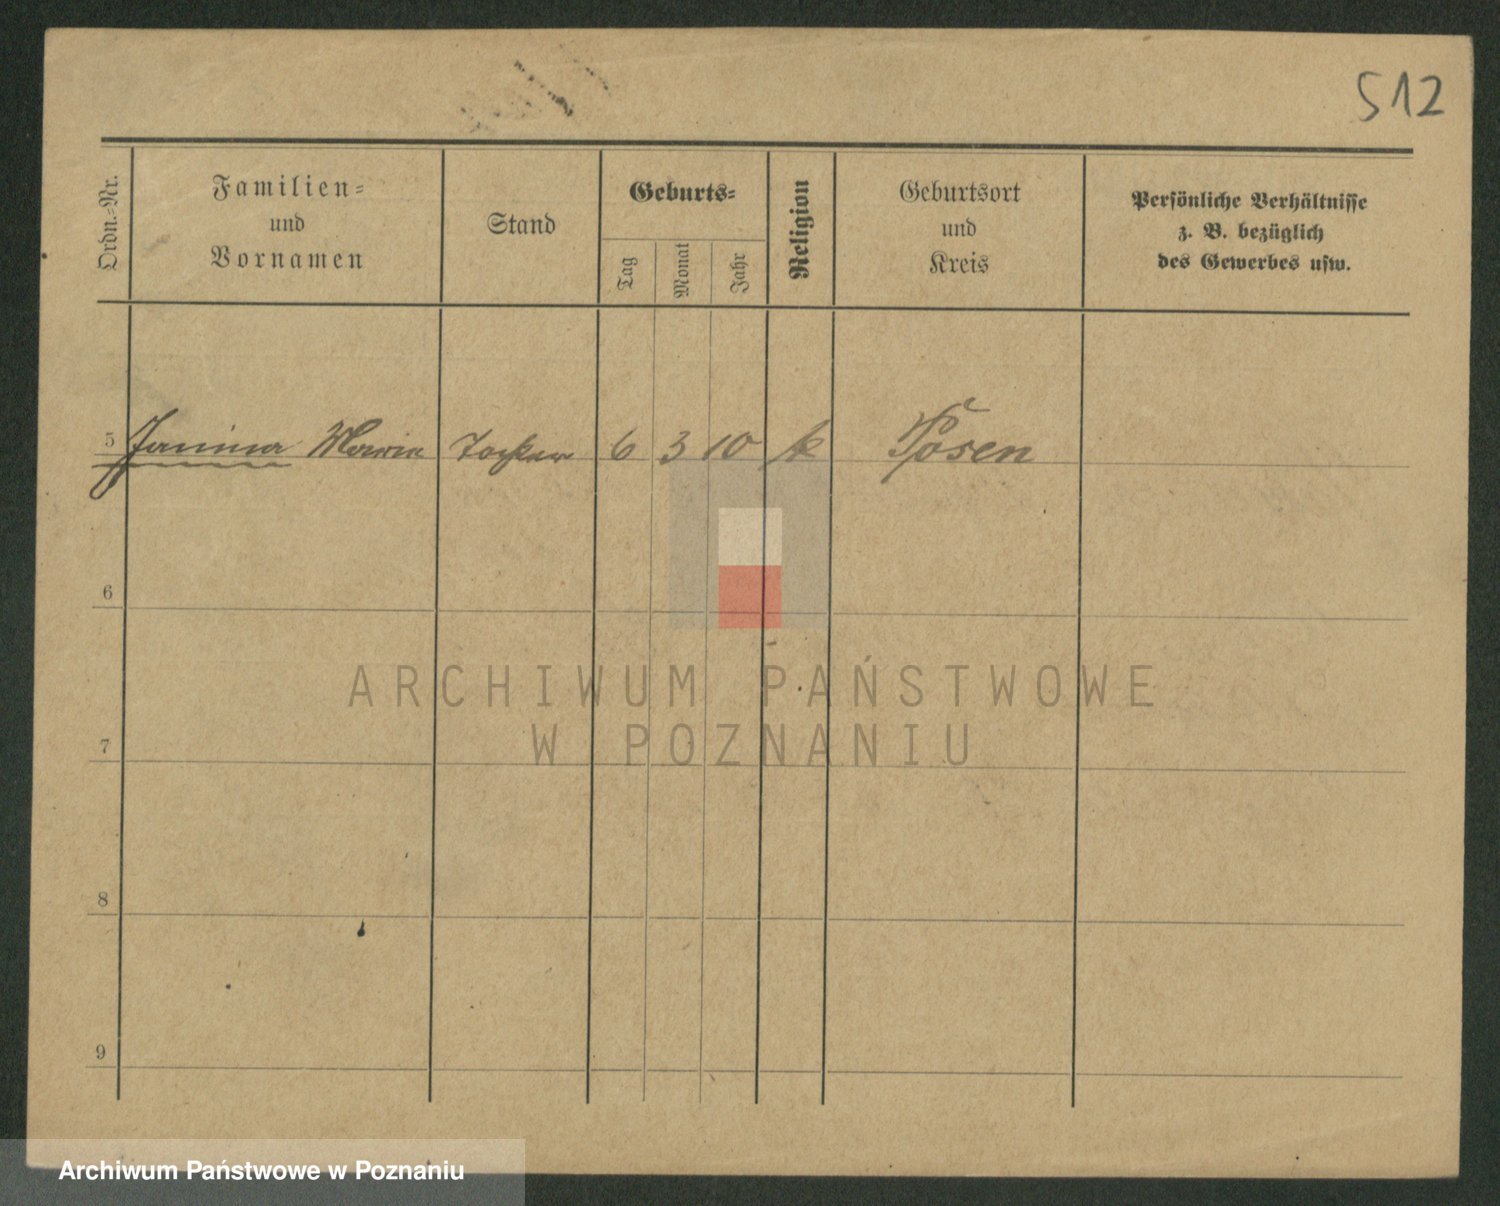 512
Ordn.-Nr.
Familien-
und
Vornamen
Stand
Geburts-
Tag
Monat
Jahr
Religion
Geburtsort
und
Kreis
Persönliche Verhältnisse
z. B. bezüglich
des Gewerbes usw.
5 Janina Marie 6 3 10 k Posen
6
ARCHIWUM PAŃSTWOWE
W POZNANIU
7
8
9
Archiwum Państwowe w Poznaniu